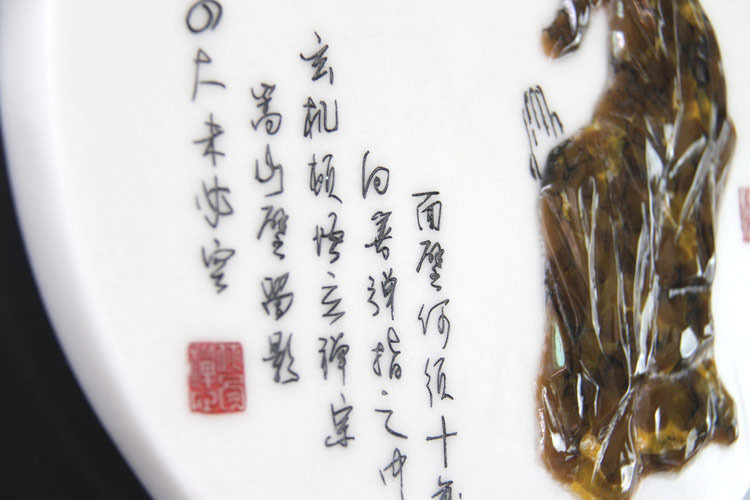 面壁何须十年
向善弹指之中
玄机顿悟立禅宗
嵩山壁留影
四大未必空